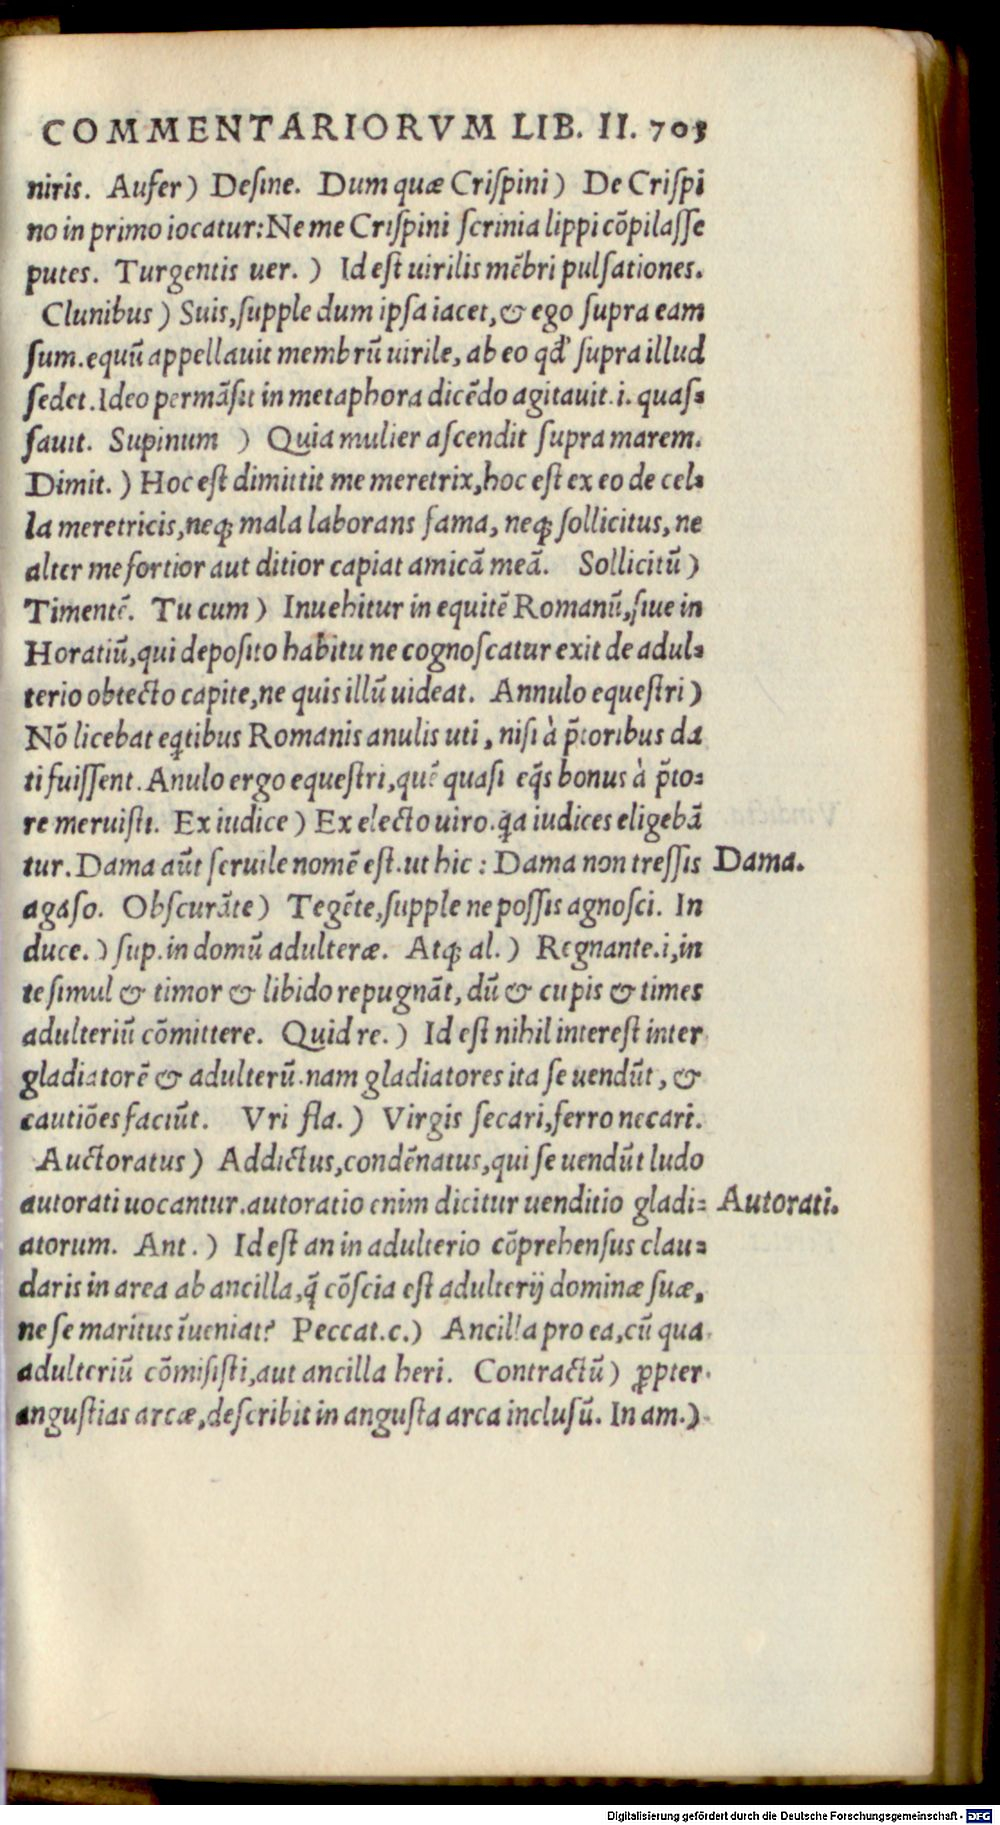 COMMENTARIORVM LIB. II. 705
niris. Aufer) Deſine. Dum quæ Criſpini) De Criſpi
no in primo iocatur: Ne me Criſpini ſcrinia lippi cõpilaſſe
putes. Turgentis uer. ) Id eſt uirilis mẽbri pulſationes.
Clunibus ) Suis, ſupple dum ipſa iacet, & ego ſupra eam
ſum. equũ appellauit membrũ uirile, ab eo qđ ſupra illud
ſedet. Ideo permãſit in metaphora dicẽdo agitauit. i. quaſ=
ſauit. Supinum ) Quia mulier aſcendit ſupra marem.
Dimit. ) Hoc eſt dimittit me meretrix, hoc eſt ex eo de cel=
la meretricis, neq; mala laborans fama, neq; ſollicitus, ne
alter me fortior aut ditior capiat amicã meã. Sollicitũ )
Timentẽ. Tu cum ) Inuehitur in equitẽ Romanũ, ſiue in
Horatiũ, qui depoſito habitu ne cognoſcatur exit de adul=
terio obtecto capite, ne quis illũ uideat. Annulo equeſtri )
Nõ licebat eq̃tibus Romanis anulis uti, niſi à p̃toribus da
ti fuiſſent. Anulo ergo equeſtri, quẽ quaſi eq̃s bonus à p̃to=
re meruiſti. Ex iudice ) Ex electo uiro. q̃a iudices eligebã
tur. Dama aũt ſeruile nomẽ eſt. ut hic : Dama non treſſis
Dama.
agaſo. Obſcurãte ) Tegẽte, ſupple ne poſſis agnoſci. In
duce. ) ſup. in domũ adulteræ. Atq; al. ) Regnante. i, in
te ſimul & timor & libido repugnãt, dũ & cupis & times
adulteriũ cõmittere. Quid re. ) Id eſt nihil intereſt inter
gladiatorẽ & adulterũ. nam gladiatores ita ſe uendũt, &
cautiões faciũt. Vri fla. ) Virgis ſecari, ferro necari.
Auctoratus ) Addictus, condẽnatus, qui ſe uendũt ludo
autorati uocantur. autoratio enim dicitur uenditio gladi=
Autorati.
atorum. Ant. ) Id eſt an in adulterio cõprehenſus clau=
daris in area ab ancilla, q̃ cõſcia eſt adulterij dominæ ſuæ,
ne ſe maritus ĩueniat? Peccat. c. ) Ancilla pro ea, cũ qua
adulteriũ cõmiſiſti, aut ancilla heri. Contractũ ) ꝓpter
anguſtias arcæ, deſcribit in anguſta arca incluſũ. In am. )
Digitalisierung gefördert durch die Deutsche Forschungsgemeinschaft - DFG